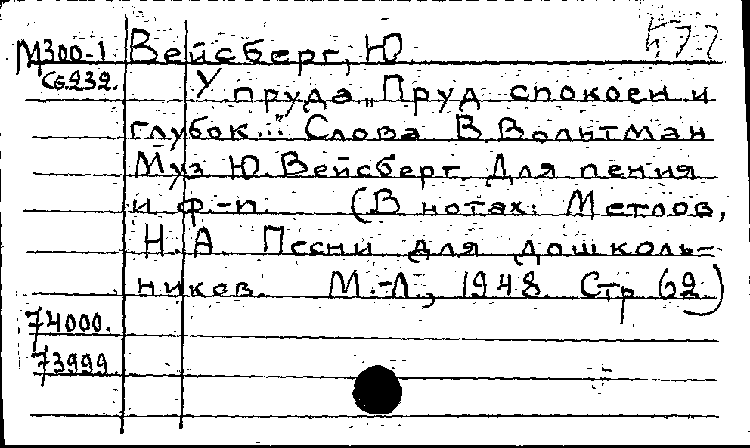 М300-1 Вейсберг, Ю.
Сб.232. У пруда „Пруд спокоен и
глубок..." Слова В. Вольтман
Муз. Ю. Вейсберг. Для пения
и ф.-п. (В нотах: Метлов,
Н.А. Песни для дошколь-
ников. М.-Л., 1948. Стр 62)
74000.
73999